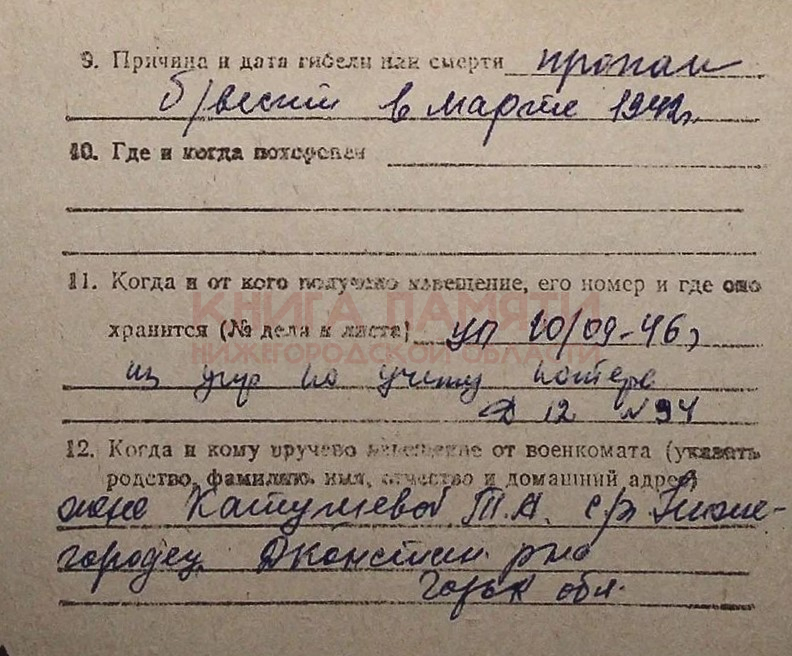 9. Причина и дата гибели или смерти пропал
б/вести в марте 1942г.
10. Где и когда похоронен
11. Когда и от кого получено извещение, его номер и где оно
КНИГА ПАМЯТИ
хранится (№ дела и листа) уп 20/09-46г
НИЖЕГОРОДСКОЙ ОБЛАСТИ
из упр по учету потерь
Д 12 N 94
12. Когда и кому вручено извещение от военкомата (указать
родство, фамилию, имя, отчество и домашний адрес)
жене Т.А. с/з Ниже-
городец Дконстин. р-на
Горьк обл.